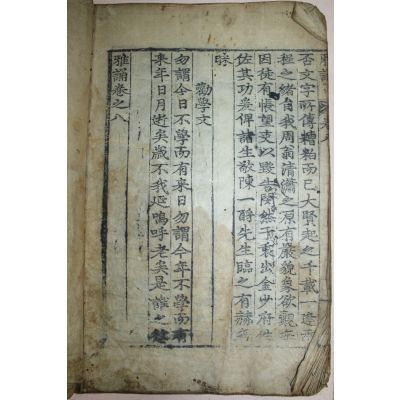 否文字所傳糟粕而已大賢起之千載一逢
程之緒自我周翁清濂之源有嚴貌象欲觀無
因徒有悵望爰以毀告閔然予衷出金少府
佐其功爰俾諸生敬陳一酹先生臨之有赫
昧
勸學文
勿謂今日不學而有來日勿謂今年不學而有
来年日月逝矣歲不我延嗚呼老矣是誰之愆
雅誦卷之八